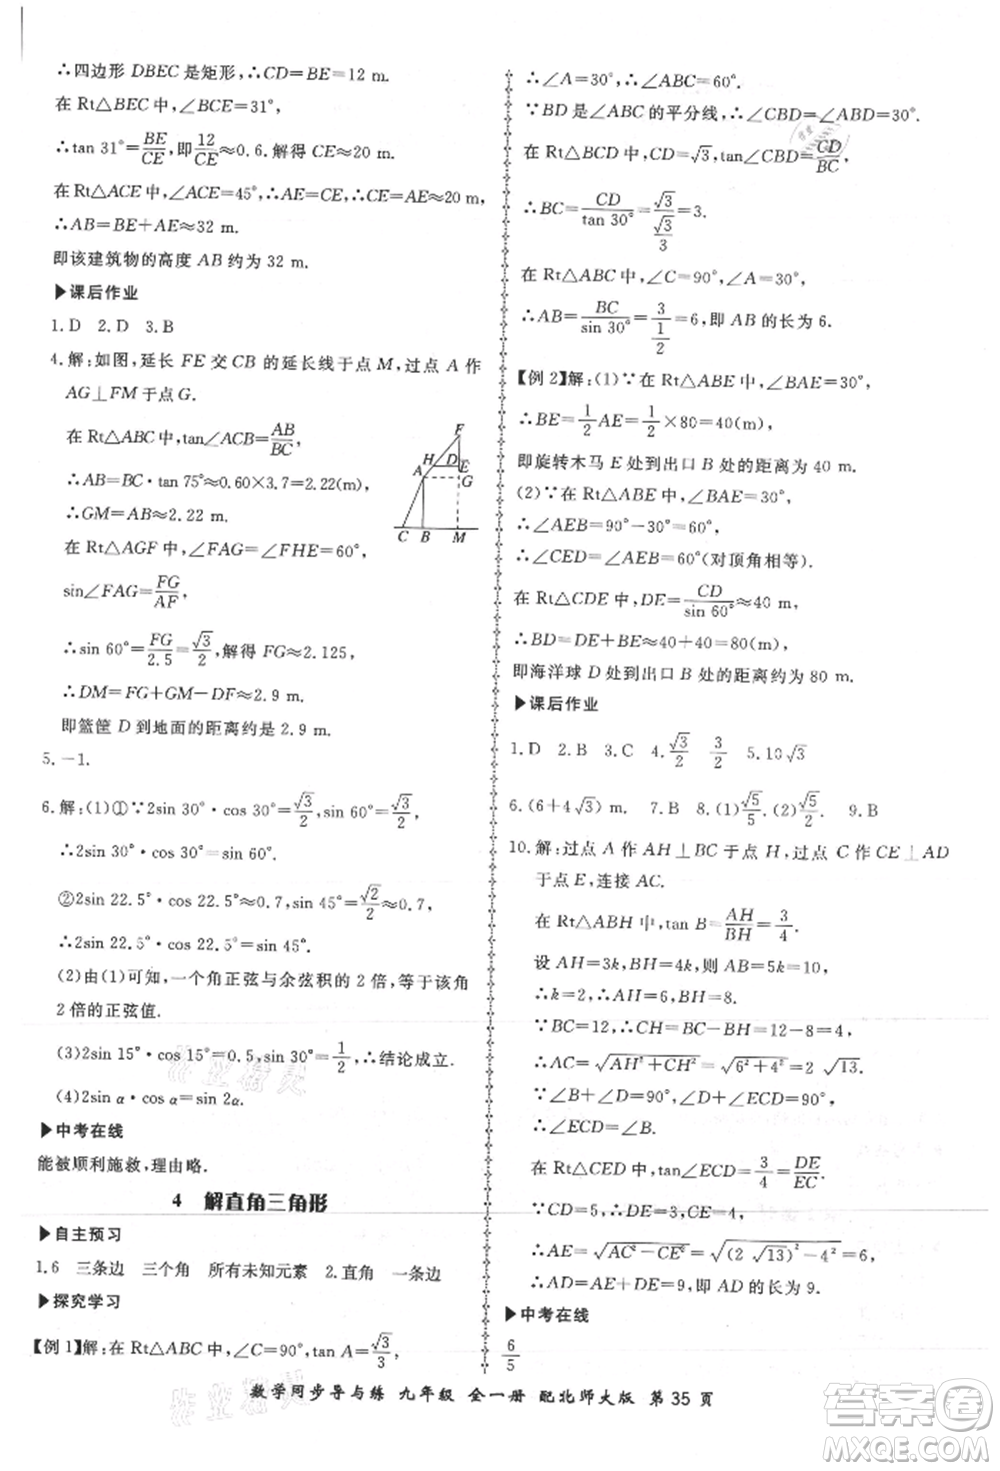 ∴四边形 DBEC 是矩形,∴CD=BE=12 m.
在 Rt△BEC 中,∠BCE=31°,
∴tan 31°=BE/CE,即12/CE≈0.6.解得 CE≈20 m.
在 Rt△ACE 中,∠ACE=45°,∴AE=CE≈20 m,
∴AB=BE+AE≈32 m.
即该建筑物的高度 AB 约为 32 m.
▶课后作业
1.D 2.D 3.B
4.解:如图,延长 FE 交 CB 的延长线于点 M,过点 A 作
AG⊥FM 于点 G.
在 Rt△ABC 中,tan∠ACB=AB/BC,
∴AB=BC·tan 75°≈0.60×3.7=2.22(m).
∴GM=AB≈2.22 m.
在 Rt△AGF 中,∠FAG=∠FHE=60°,
sin∠FAG=FG/AF,
∴sin 60°=FG/2.5=√3/2,解得 FG≈2.125,
∴DM=FG+GM−DF≈2.9 m.
即篮筐 D 到地面的距离约是 2.9 m.
F
H D E
A G
C B M
5.−1.
6.解:(1)①∵2sin 30°·cos 30°=√3/2,sin 60°=√3/2,
∴2sin 30°·cos 30°=sin 60°.
②2sin 22.5°·cos 22.5°≈0.7,sin 45°=√2/2≈0.7,
∴2sin 22.5°·cos 22.5°=sin 45°.
(2)由(1)可知,一个角正弦与余弦积的 2 倍,等于该角
2 倍的正弦值.
(3)2sin 15°·cos 15°=0.5,sin 30°=1/2,∴结论成立.
(4)2sin α·cos α=sin 2α.
▶中考在线
能被顺利施救,理由略.
4 解直角三角形
▶自主预习
1.6 三条边 三个角 所有未知元素 2.直角 一条边
▶探究学习
【例 1】解:在 Rt△ABC 中,∠C=90°,tan A=√3/3,
∴∠A=30°,∴∠ABC=60°.
∵BD 是∠ABC 的平分线,∴∠CBD=∠ABD=30°.
在 Rt△BCD 中,CD=√3,tan∠CBD=CD/BC,
∴BC=CD/tan 30°=√3/(√3/3)=3.
在 Rt△ABC 中,∠C=90°,∠A=30°,
∴AB=BC/sin 30°=3/(1/2)=6,即 AB 的长为 6.
【例 2】解:(1)∵在 Rt△ABE 中,∠BAE=30°,
∴BE=1/2AE=1/2×80=40(m).
即旋转木马 E 处到出口 B 处的距离为 40 m.
(2)∵在 Rt△ABE 中,∠BAE=30°,
∴∠AEB=90°−30°=60°,
∴∠CED=∠AEB=60°(对顶角相等).
在 Rt△CDE 中,DE=CD/sin 60°≈40 m,
∴BD=DE+BE≈40+40=80(m).
即海洋球 D 处到出口 B 处的距离约为 80 m.
▶课后作业
1.D 2.B 3.C 4.√3/2 3/2 5.10√3
6.(6+4√3) m. 7.B 8.(1)√5/5. (2)√5/2. 9.B
10.解:过点 A 作 AH⊥BC 于点 H,过点 C 作 CE⊥AD
于点 E,连接 AC.
在 Rt△ABH 中,tan B=AH/BH=3/4,
设 AH=3k,BH=4k,则 AB=5k=10,
∴k=2,∴AH=6,BH=8.
∵BC=12,∴CH=BC−BH=12−8=4,
∴AC=√(AH²+CH²)=√(6²+4²)=2√13.
∵∠B+∠D=90°,∠D+∠ECD=90°,
∴∠ECD=∠B.
在 Rt△CED 中,tan∠ECD=3/4=DE/EC,
∵CD=5,∴DE=3,CE=4,
∴AE=√(AC²−CE²)=√((2√13)²−4²)=6,
∴AD=AE+DE=9,即 AD 的长为 9.
▶中考在线
6/5
数学同步导与练 九年级 全一册 配北师大版 第 35 页
答案圈
MXQE.COM